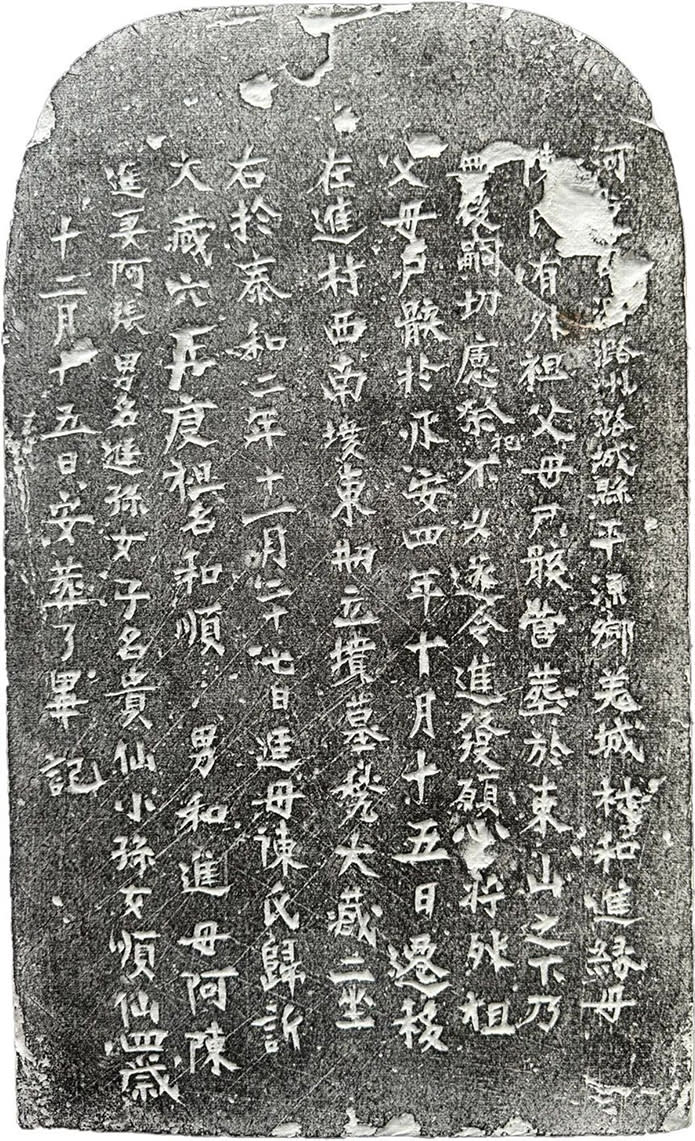 河潞州潞城縣平源鄉羌城村和進緣母
有外祖父母尸骸當葬於東山之下乃
後嗣切慮祖不令進發願心將外祖
父母尸骸於承安四年十月十五日遷移
在進村西南墳東立墳墓甃大藏二坐
右於泰和二年十一月二十七日進母陳氏歸訖
大藏穴祖名和順 男和進母阿陳
進妻阿張男名進孫女子名貴仙小孫女順仙四歲
十二月十五日安葬了畢記